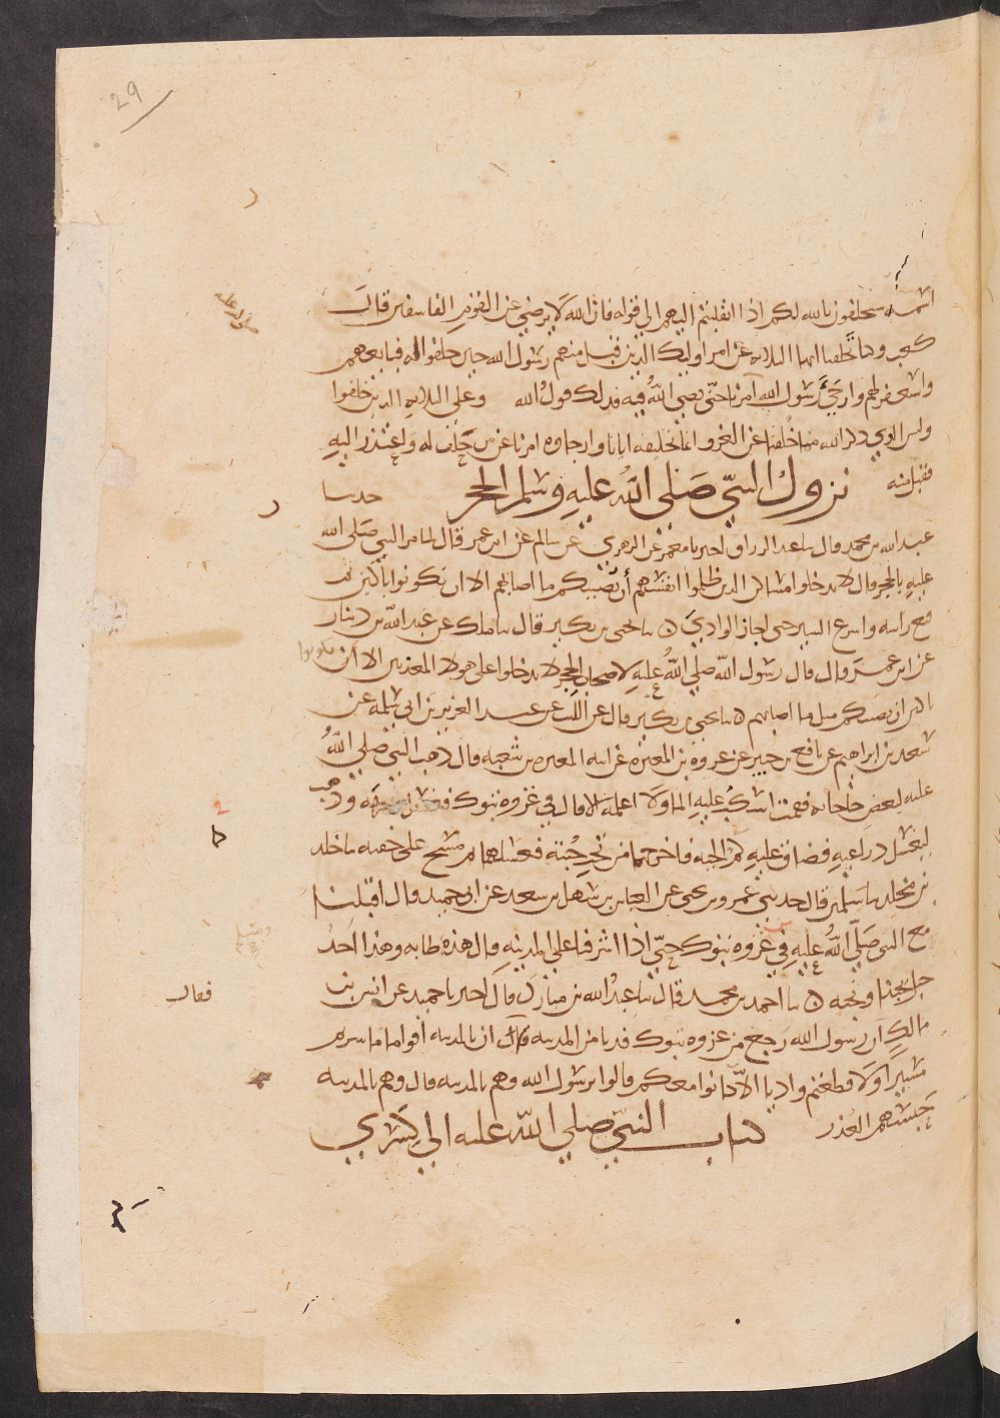 29
اسمه سيحلفون بالله لكم اذا انقلبتم اليهم الى قوله فان الله لا يرضى عن القوم الفاسقين قال
كعب وكنا تخلفنا ايها الثلاثة عن امر اوليك الذين قبل منهم رسول الله حين حلفوا له فبايعهم
واستغفر لهم وارجى رسول الله امرنا حتى يقضي الله فيه فبذلك قول الله وعلى الثلاثة الذين خلفوا
وليس الذي ذكر الله مما خلفنا عن الغزو انما تخليفه ايانا وارجاوه امرنا عن من حلف له واعتذر اليه
فقبل منه نزول النبي صلى الله عليه وسلم الحجر حدثنا
عبد الله بن محمد قال نا عبد الرزاق اخبرنا معمر عن الزهري عن سالم عن ابن عمر قال لما مر النبي صلى الله
عليه بالحجر قال لا تدخلوا مساكن الذين ظلموا انفسهم أن يصيبكم ما اصابهم الا ان تكونوا باكين ثم
قنع راسه واسرع السير حتى اجاز الوادي نا يحيى بن بكير قال نا ملك عن عبد الله بن دينار
عن ابن عمر قال قال رسول الله صلى الله عليه لاصحاب الحجر لا تدخلوا على هولا المعذبين الا ان تكونوا
باكين ان يصيبكم مثل ما اصابهم نا يحيى بن بكير قال عن الليث عن عبد العزيز بن ابي سلمة عن
سعد بن ابراهيم عن نافع بن جبير عن عروه بن المغيره عن ابيه المغيره بن شعبه قال ذهب النبي صلى الله
عليه لبعض حاجاته فقمت اسكب عليه الما ولا اعلمه الا قال في غزوه تبوك فغسل وجهه وذهب
ليغسل ذراعيه فضاق عليه كم الجبه فاخرجهما من تحت جبته فغسلهما ثم مسح على خفيه نا خلد
بن مخلد نا سليمن قال حدثني عمرو بن يحيى عن العباس بن سهل بن سعد عن ابي حميد قال اقبلنا
مع النبي صلى الله عليه في غزوه تبوك حتى اذا اشرفنا على المدينه قال هذه طابه وهذا احد
جبل يحبنا ونحبه نا احمد بن محمد قال نا عبد الله بن مبارك قال اخبرنا حميد عن انس بن
مالك ان رسول الله رجع من غزوه تبوك فدنا من المدينه فقال ان بالمدينه اقواما ما سرتم
مسيرا ولا قطعتم واديا الا كانوا معكم قالوا يرسول الله وهم بالمدينه قال وهم بالمدينه
حبسهم العذر كتاب النبي صلى الله عليه الى كسرى
صلى الله عليه
فقال